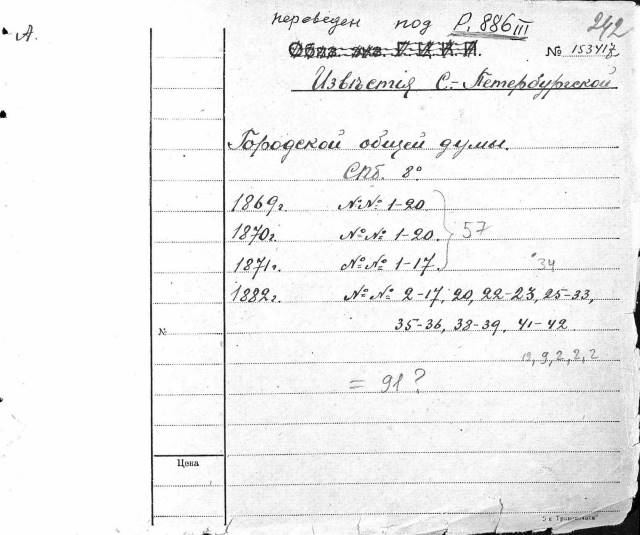 А.
переведен под Р. 886 III
242
Обяз. экз. Г. И. К. И.
№ 153417
Извѣстія С.-Петербургской
Городской общей думы.
Спб. 8°
1869г. №№ 1-20
1870г. №№ 1-20. 57
1871г. №№ 1-17. 34
1882г. №№ 2-17, 20, 22-23, 25-33,
№ 35-36, 38-39, 41-42
9, 2, 2, 2
= 91?
Цена